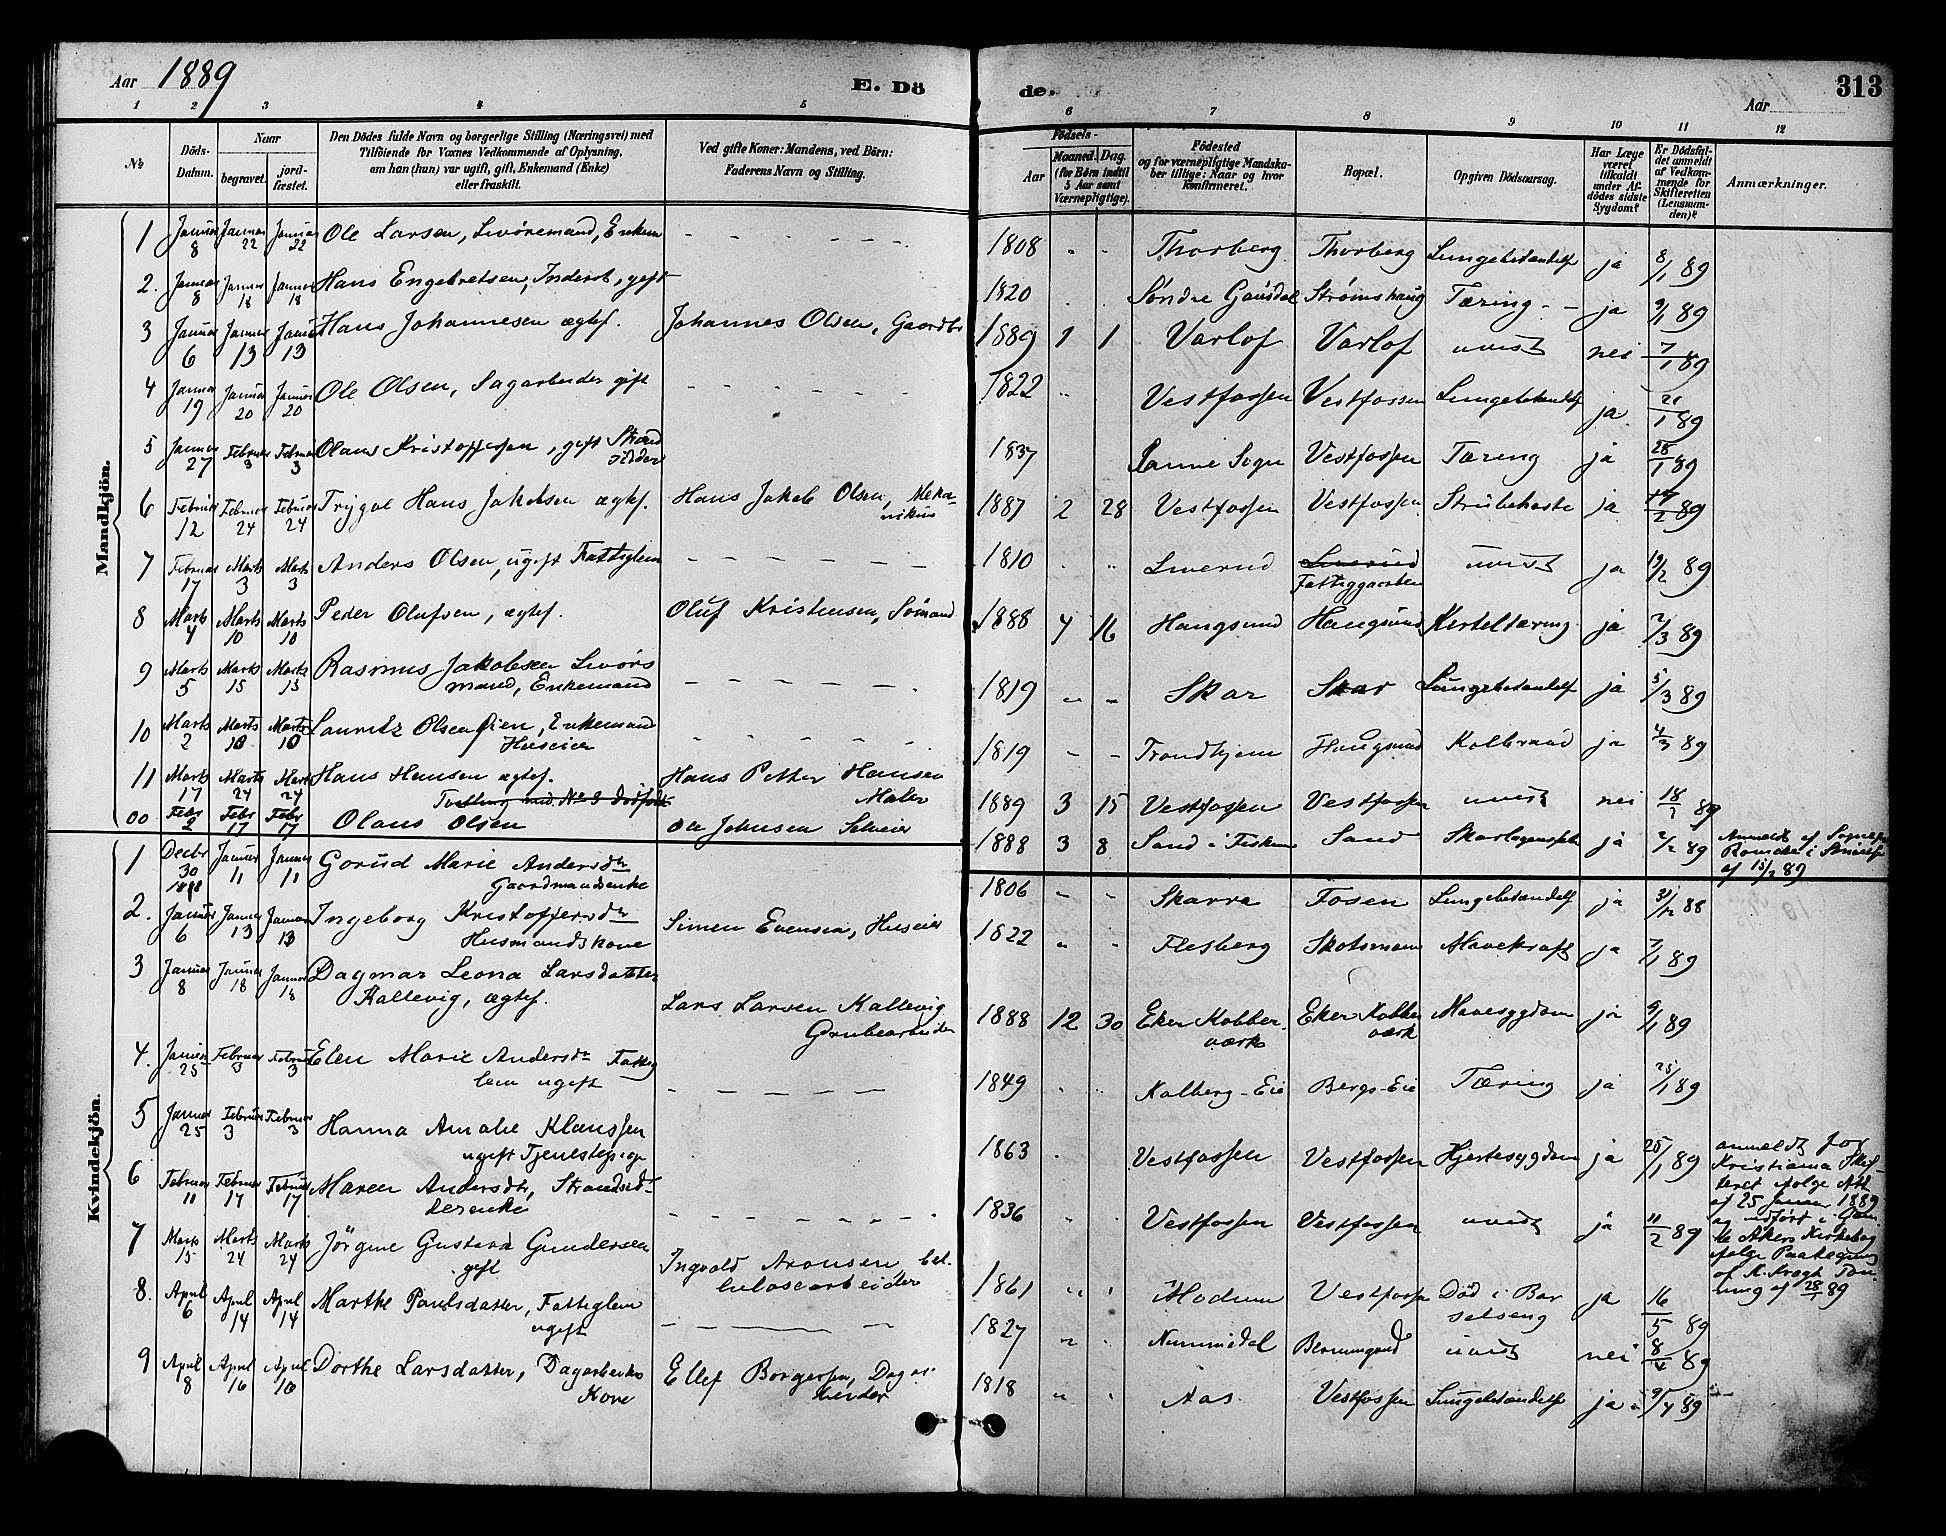 Aar 1889
E. Dö
de.
313
Aar
1 2 3 4 5 6 7 8 9 10 11 12
No.
Döds-
Datum.
Naar
begravet.
jord-
fæstet.
Den Dödes fulde Navn og borgerlige Stilling (Næringsvei) med
Tilföiende for Voxnes Vedkommende af Oplysning,
om han (hun) var ugift, gift, Enkemand (Enke)
eller fraskilt.
Ved gifte Koner: Mandens, ved Börn:
Faderens Navn og Stilling.
Födsels-
Aar
Maaned. Dag.
(for Börn indtil
5 Aar samt
Værnepligtige).
Födested
og for værnepligtige Mandska-
ber tillige: Naar og hvor
konfirmeret.
Bopæl.
Opgiven Dödsaarsag.
Har Læge
været
tilkaldt
under Af-
dödes sidste
Sygdom?
Er Dödsfal-
det anmeldt
af Vedkom-
mende for
Skifteretten
(Lensman-
den)?
Anmærkninger.
Mandkjön.
1 Januar 8 Januar 22 Januar 22 Ole Larsen, Enkem 1808 Thorberg Thorberg ja 8/1 89
2. Januar 8 Januar 18 Januar 18 Hans Engebretsen, Inderst, gift 1820 Søndre Gausdal Strømshaug Tæring ja 9/1 89
3 Januar 6 Januar 13 Januar 13 Hans Johannesen ægtef. Johannes Olsen, Gaardbr 1889 1 1 Varlof Varlof uvist nei 7/1 89
4 Januar 19 Januar 20 Januar 20 Ole Olsen, Sagarbeider gift 1822 Vestfossen Vestfossen Lungebetændelse ja 21/1 89
5 Januar 27 Februar 3 Februar 3 Olaus Kristoffersen, gift Strand
sidder 1837 Sogn Vestfossen Tæring ja 28/1 89
6 Februar 12 Februar 24 Februar 24 Trygve Hans Jakobsen ægtef. Hans Jakob Olsen, Meka-
nikus 1887 2 28 Vestfossen Vestfossen Strubehoste ja /2 89
7 Februar 17 Marts 3 Marts 3 Anders Olsen, ugift Fattiglem 1810 ja 19/2 89
Fattiggaarden uvist
8 Marts 4 Marts 10 Marts 10 Peder Olufsen, ægtef. Oluf Kristensen, Sömand 1888 4 16 Haugsund Haugsund Kirteltæring ja 7/3 89
9 Marts 5 Marts 15 Marts 15 Rasmus Jakobsen
mand, Enkemand 1819 Skar Skar Lungebetændelse ja 5/3 89
10 Marts 2 Marts 10 Marts 10 Lauritz Olsen Øien, Enkemand
Huseier 1819 Trondhjem Haugsund Koldbrand ja 4/3 89
11 Marts 17 Marts 24 Marts 24 Hans Hansen ægtef. Hans Petter Hansen
Maler 1889 3 15 Vestfossen Vestfossen uvist nei 18/ 89
00 Febr 2 Febr 17 Febr 17 Olaus Olsen Ole Johnsen Selveier 1888 3 8 Sand i Fiskum Sand Skarlagensfeber ja 2/2 89
af 15/2 89
Kvindekjön.
1 Decbr 30 1888 Januar 11 Januar 11 Gorud Marie Andersdtr
Gaardmandsenke 1806 Skarra Fosen Lungebetændelse ja 31/12 88
2. Januar 6 Januar 13 Januar 13 Ingeborg Kristoffersdtr
Husmandskone Simen Evensen, Huseier 1822 Flesberg Skotsmoen Mavekræft ja 7/1 89
3 Januar 8 Januar 18 Januar 18 Dagmar Leona Larsdatter
Kallevig, ægtef. Lars Larsen Kallevig
Grubearbeider 1888 12 30 Eker Kobber-
værk Eker Kobber
værk Mavesygdom ja 9/1 89
4. Januar 25 Februar 3 Februar 3 Elen Marie Andersdtr Fattig
lem ugift 1849 Kalberg-Eie Bergs-Eie Tæring ja 25/1 89
5 Januar 25 Februar 3 Februar 3 Hanna Amalie Klaussen
ugift Tjenestepige 1863 Vestfossen Vestfossen Hjertesygdom ja 25/1 89 anmeldt for
Kristiania Skif-
teret
af 25 Januar 1889
og indført i Gam-
le Akers Kirkebog
ifølge Paategning
6 Februar 11 Februar 17 Februar 17 Maren Andersdtr, Strandsid-
derenke 1836 Vestfossen Vestfossen uvist ja 11/2 89
7 Marts 15 Marts 24 Marts 24 Jörgine Gustava Gundersen
gift Ingvald Aronsen Cel-
lulosearbeider 1861 Modum Vestfossen Död i Bar
selseng ja 16/5 89
8. April 6 April 14 April 14 Marthe Paulsdatter, Fattiglem
ugift 1827 Nummedal uvist nei 8/4 89
9 April 8 April 16 April 16 Dorthe Larsdatter, Dagarbeiders
Kone Ellef Borgersen, Dagar-
beider 1818 Aas Vestfossen Lungebetændelse ja 9/4 89